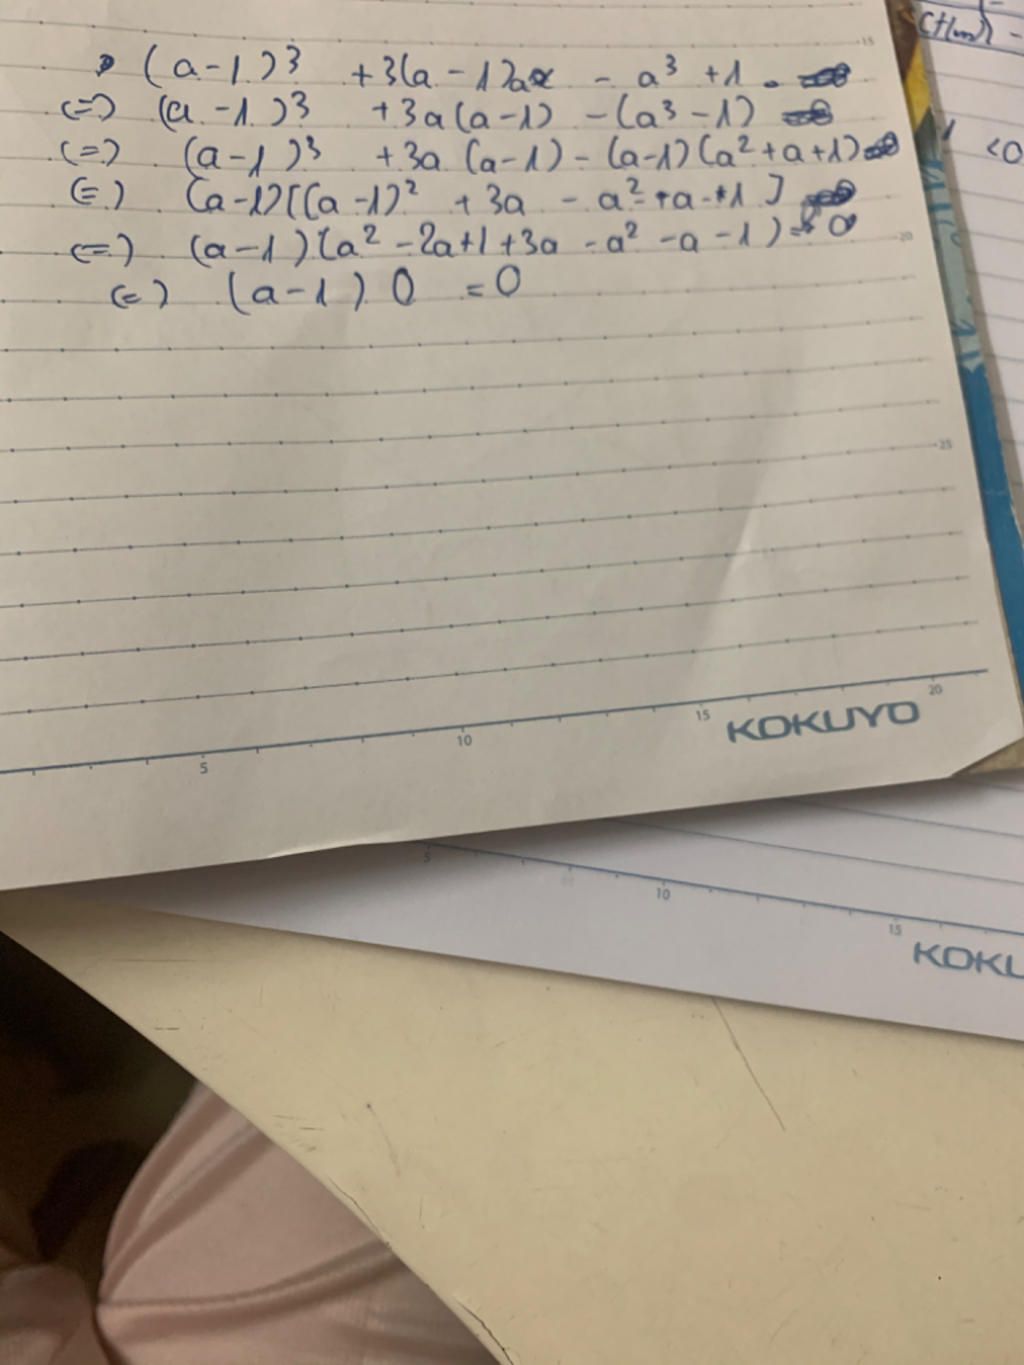 C+(m)) -
15
(a-1)³ +3(a-1)a - a³ +1
(=) (a-1)³ +3a(a-1) -(a³-1)
<0
(=) (a-1)³ +3a (a-1) - (a-1)(a²+a+1)
(=) (a-1)[(a-1)² +3a - a² - a - 1]
(=) (a-1)(a² -2a+1+3a -a² -a -1) = 0
20
(=) (a-1) 0 = 0
25
5 10 15 20
KOKUYO
5 10 15
KOKU